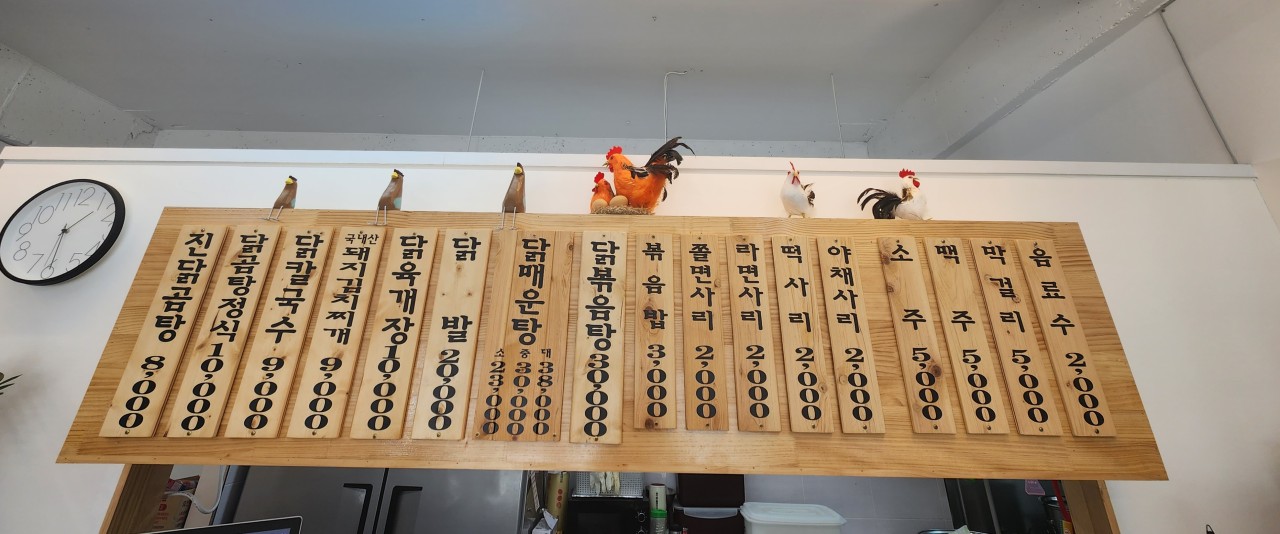 진닭곰탕 8,000
닭곰탕정식 10,000
닭칼국수 9,000
국내산
돼지김치찌개 9,000
닭육개장 10,000
닭발 20,000
닭매운탕
소 23,000
중 30,000
대 38,000
닭볶음탕 30,000
볶음밥 3,000
쫄면사리 2,000
라면사리 2,000
떡사리 2,000
야채사리 2,000
소주 5,000
맥주 5,000
막걸리 5,000
음료수 2,000